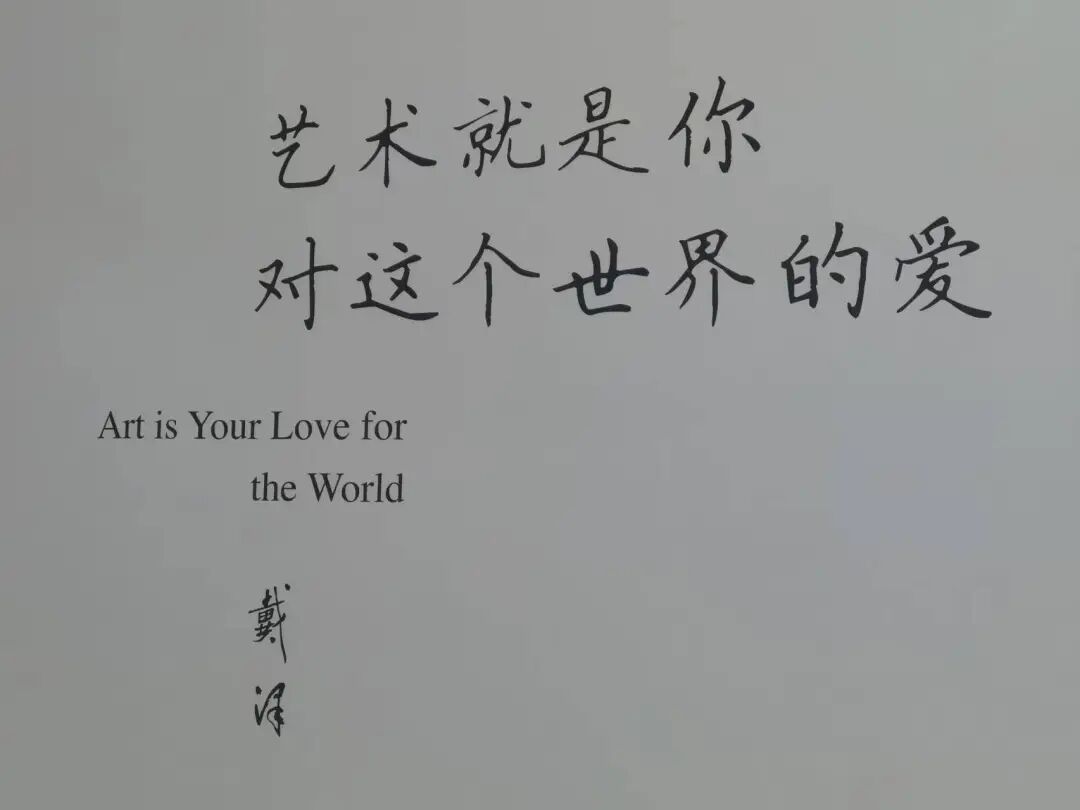 艺术就是你
对这个世界的爱
Art is Your Love for
the World
戴
泽